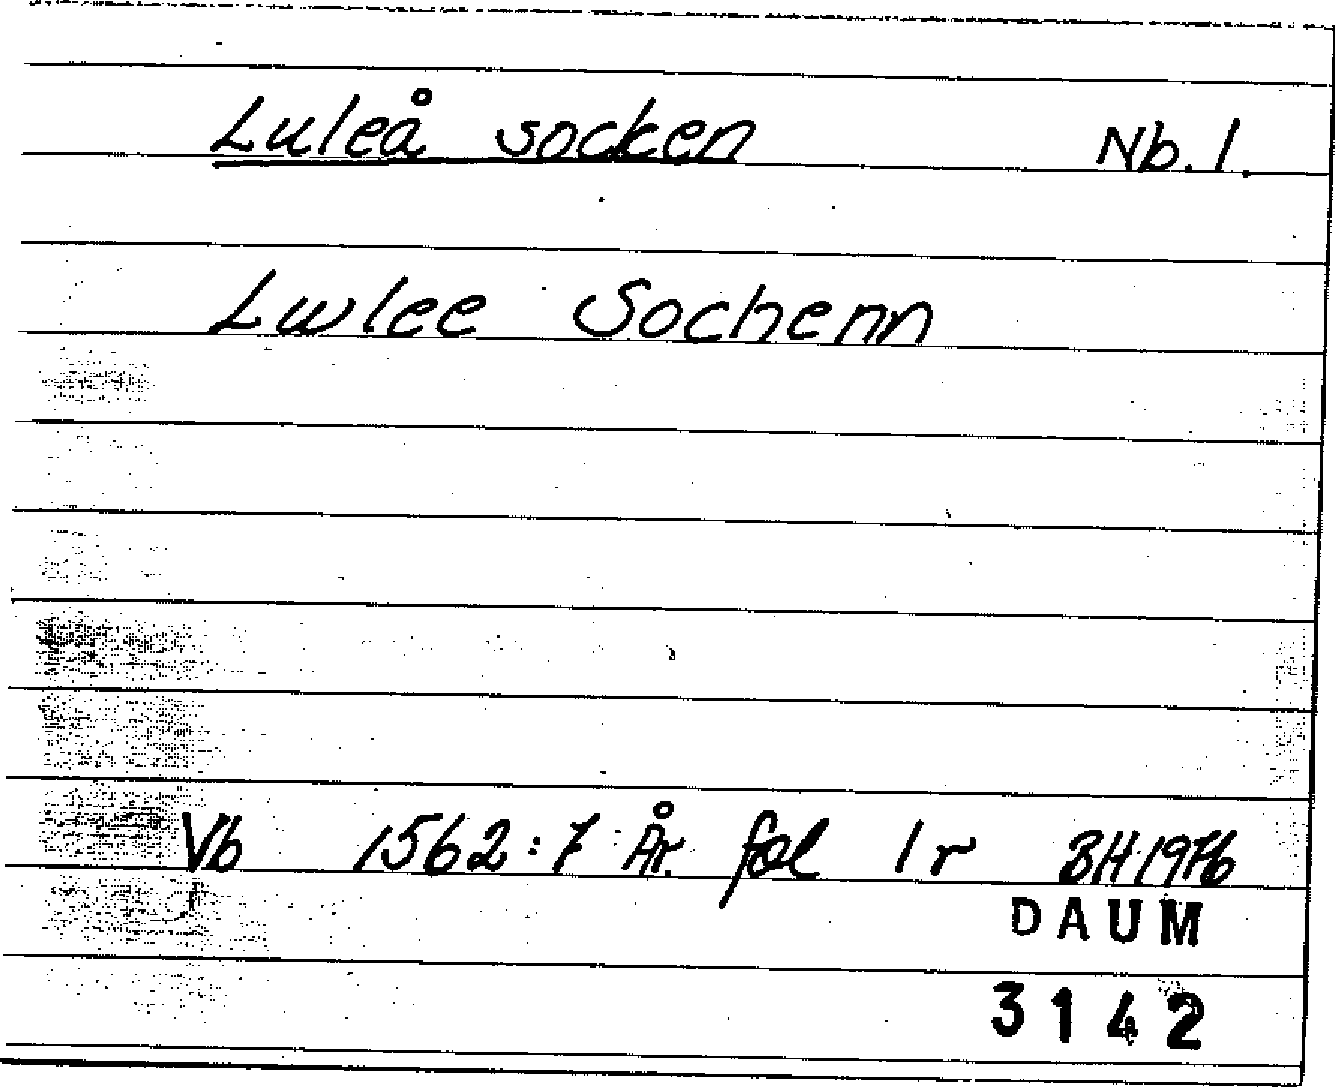 Luleå socken Nb. 1.
Lwlee Sochenn
Vb 1562:7 År. fol 1 r BH 1976
DAUM
3142